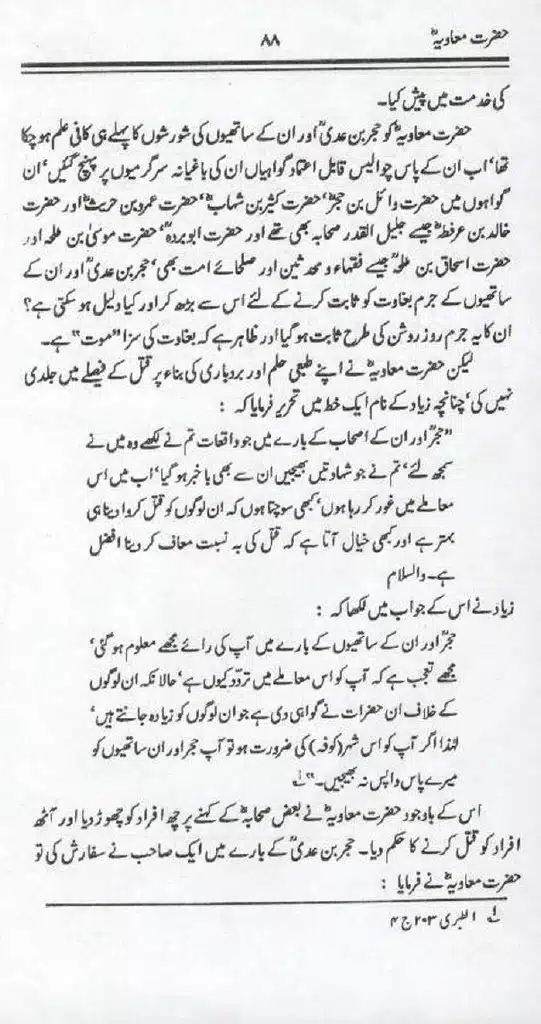 حضرت معاویہؓ
۸۸
کی خدمت میں پیش کیا۔
حضرت معاویہؓ کو حجر بن عدیؓ اور ان کے ساتھیوں کی شورشوں کا پہلے ہی کافی علم ہو چکا
تھا، اب ان کے پاس چوالیس قابل اعتماد گواہیاں ان کی باغیانہ سرگرمیوں پر پہنچ گئیں، ان
گواہوں میں حضرت وائل بن حجرؓ، حضرت کثیر بن شہابؓ، حضرت عمرو بن حریثؓ اور حضرت
خالد بن عرفطہؓ جیسے جلیل القدر صحابہ بھی تھے اور حضرت ابو بردہؒ، حضرت موسیٰ بن طلحہؒ اور
حضرت اسحاق بن طلحہؒ جیسے فقہاء و محدثین اور صلحائے امت بھی، حجر بن عدیؓ اور ان کے
ساتھیوں کے جرم بغاوت کو ثابت کرنے کے لئے اس سے بڑھ کر اور کیا دلیل ہو سکتی ہے؟
ان کا یہ جرم روز روشن کی طرح ثابت ہو گیا اور ظاہر ہے کہ بغاوت کی سزا "موت" ہے۔
لیکن حضرت معاویہؓ نے اپنے طبعی حلم اور بردباری کی بناء پر قتل کے فیصلے میں جلدی
نہیں کی، چنانچہ زیاد کے نام ایک خط میں تحریر فرمایا کہ :
"حجرؓ اور ان کے اصحاب کے بارے میں جو واقعات تم نے لکھے وہ میں نے
سمجھ لئے، تم نے جو شہادتیں بھیجیں ان سے بھی باخبر ہو گیا، اب میں اس
معاملے میں غور کر رہا ہوں، کبھی سوچتا ہوں کہ ان لوگوں کو قتل کروا دینا ہی
بہتر ہے اور کبھی خیال آتا ہے کہ قتل کی بہ نسبت معاف کر دینا افضل
ہے۔ والسلام
زیاد نے اس کے جواب میں لکھا کہ :
حجرؓ اور ان کے ساتھیوں کے بارے میں آپ کی رائے مجھے معلوم ہو گئی،
مجھے تعجب ہے کہ آپ کو اس معاملے میں تردّد کیوں ہے، حالانکہ ان لوگوں
کے خلاف ان حضرات نے گواہی دی ہے جو ان لوگوں کو زیادہ جانتے ہیں،
لہٰذا اگر آپ کو اس شہر (کوفہ) کی ضرورت ہو تو آپ حجر اور ان ساتھیوں کو
میرے پاس واپس نہ بھیجیں۔" ؎۱
اس کے باوجود حضرت معاویہؓ نے بعض صحابہؓ کے کہنے پر چھ افراد کو چھوڑ دیا اور آٹھ
افراد کو قتل کرنے کا حکم دیا۔ حجر بن عدیؓ کے بارے میں ایک صاحب نے سفارش کی تو
حضرت معاویہؓ نے فرمایا :
؎۱ الطبری ۲۰۳ ج ۴